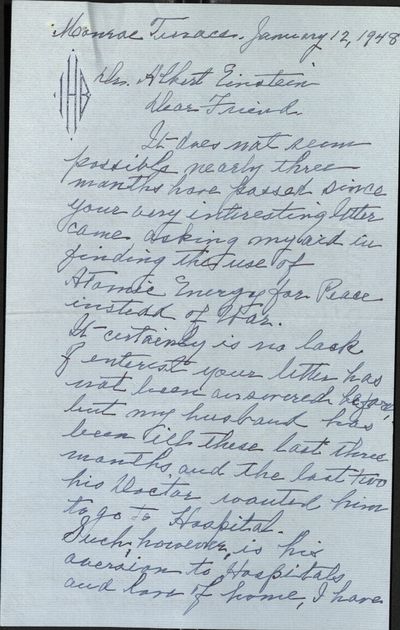 Monroe Terrace. January 12, 1948
IHB
Dr. Albert Einstein
Dear Friend.
It does not seem
possible nearly three
months have passed since
your very interesting letter
came asking my aid in
finding the use of
Atomic Energy for Peace
instead of War.
It certainly is no lack
of enterest your letter has
not been answered before,
but my husband has
been ill these last three
months and the last two
his Doctor wanted him
to go to Hospital.
Such however, is his
aversion to Hospitals,
and love of home, I have